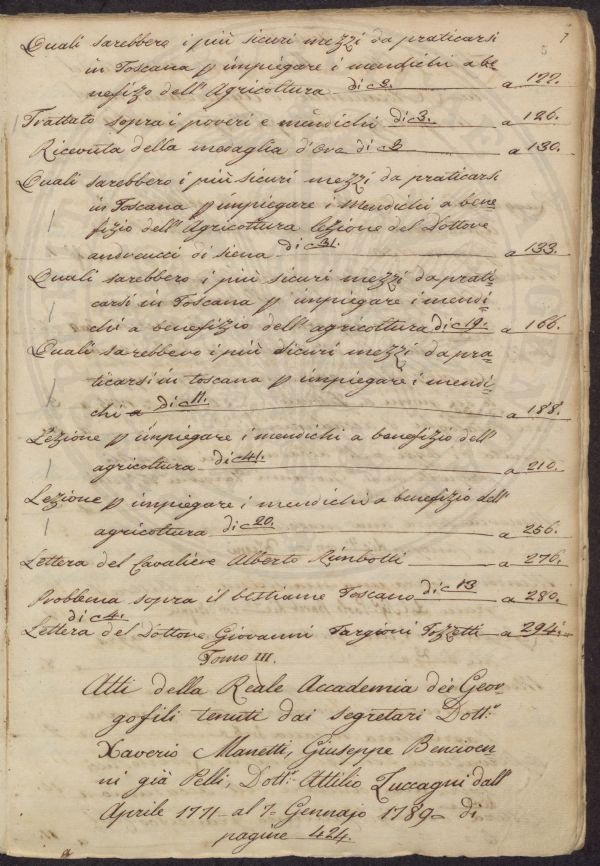 7
5
Quali sarebbero i più sicuri mezzi da praticarsi
in Toscana p impiegare i mendichi a be
nefizo dell'Agricoltura di c 8. a 122.
Trattato sopra i poveri e mendichi di c 3. a 126.
Ricevuta della medaglia d'Oro di c 3 a 130.
Quali sarebbero i più sicuri mezzi da praticarsi
in Toscana p impiegare i Mendichi a bene
fizio dell'Agricoltura lezione del Dottore
andreucci di siena di c 31. a 133.
Quali sarebbero i più sicuri mezzi da prati
carsi in Toscana p impiegare i mendi
chi a benefizio dell'agricoltura di c 19. a 166.
Quali sarebbero i più sicuri mezzi da pra
ticarsi in toscana p impiegare i mendi
chi a di c 11. a 188.
Lezione p impiegare i mendichi a benefizio dell'
agricoltura di c 41. a 210.
Lezione p impiegare i mendichi a benefizio dell'
agricoltura di c 20. a 256.
Lettera del Cavaliere Alberto Rimbotti a 276.
Problema sopra il bestiame Toscano di c 13 a 280.
di c 4.
Lettera del Dottore Giovanni Targioni Tozzetti a 294.
Tomo III.
Atti della Reale Accademia dei Geor
gofili tenuti dai segretari Dott.r
Xaverio Manetti, Giuseppe Bencioen
ni già Pelli, Dott.r Attilio Zuccagni dall'
Aprile 1771 al 7 Gennajo 1789 di
pagine 424.